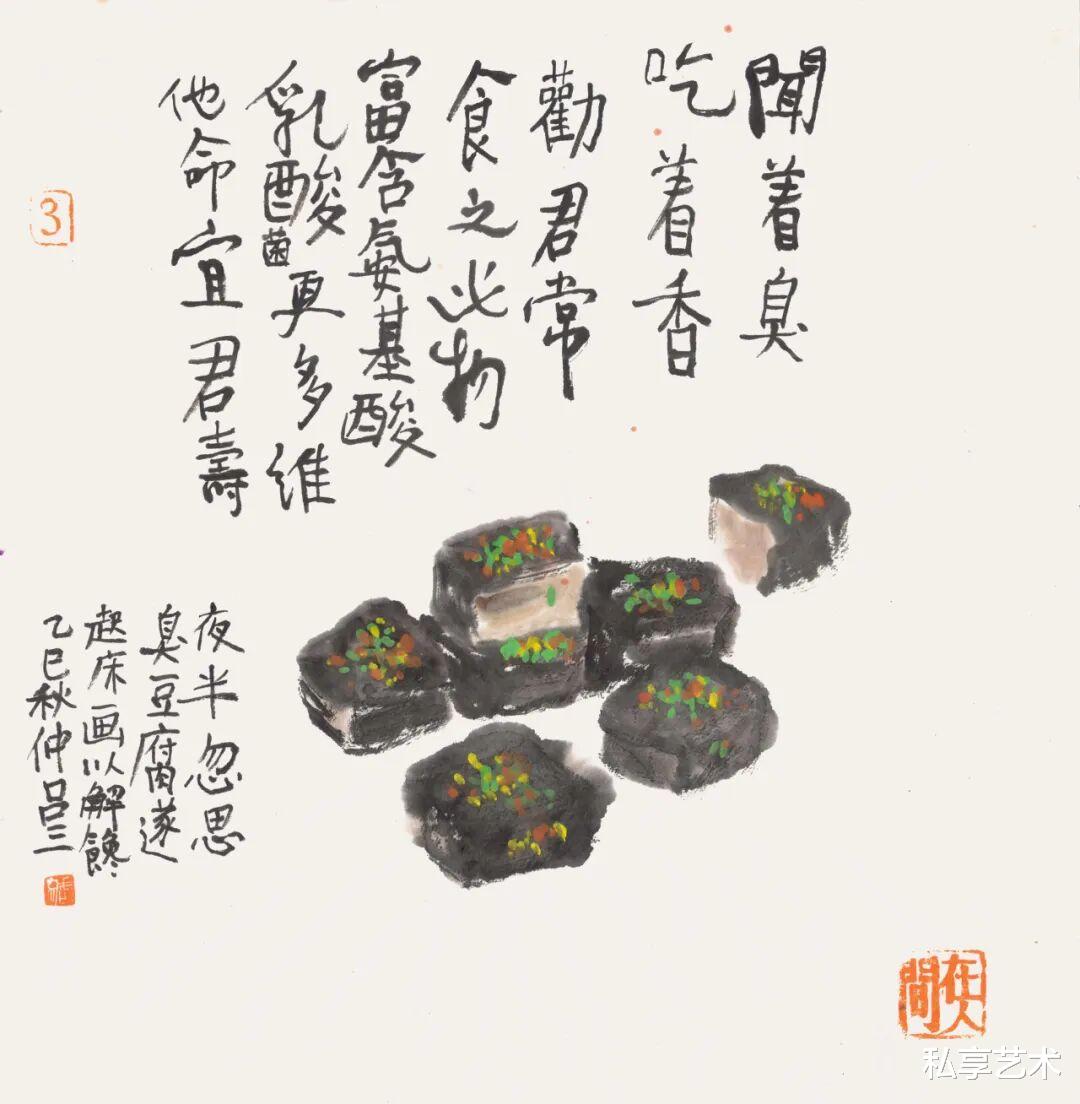 聞着臭
吃着香
勸君常
食之此物
富含氨基酸
乳酸菌更多維
他命宜君壽
夜半忽思
臭豆腐遂
起床画以解饞
乙巳秋仲吕三
3
在人間
私享艺术